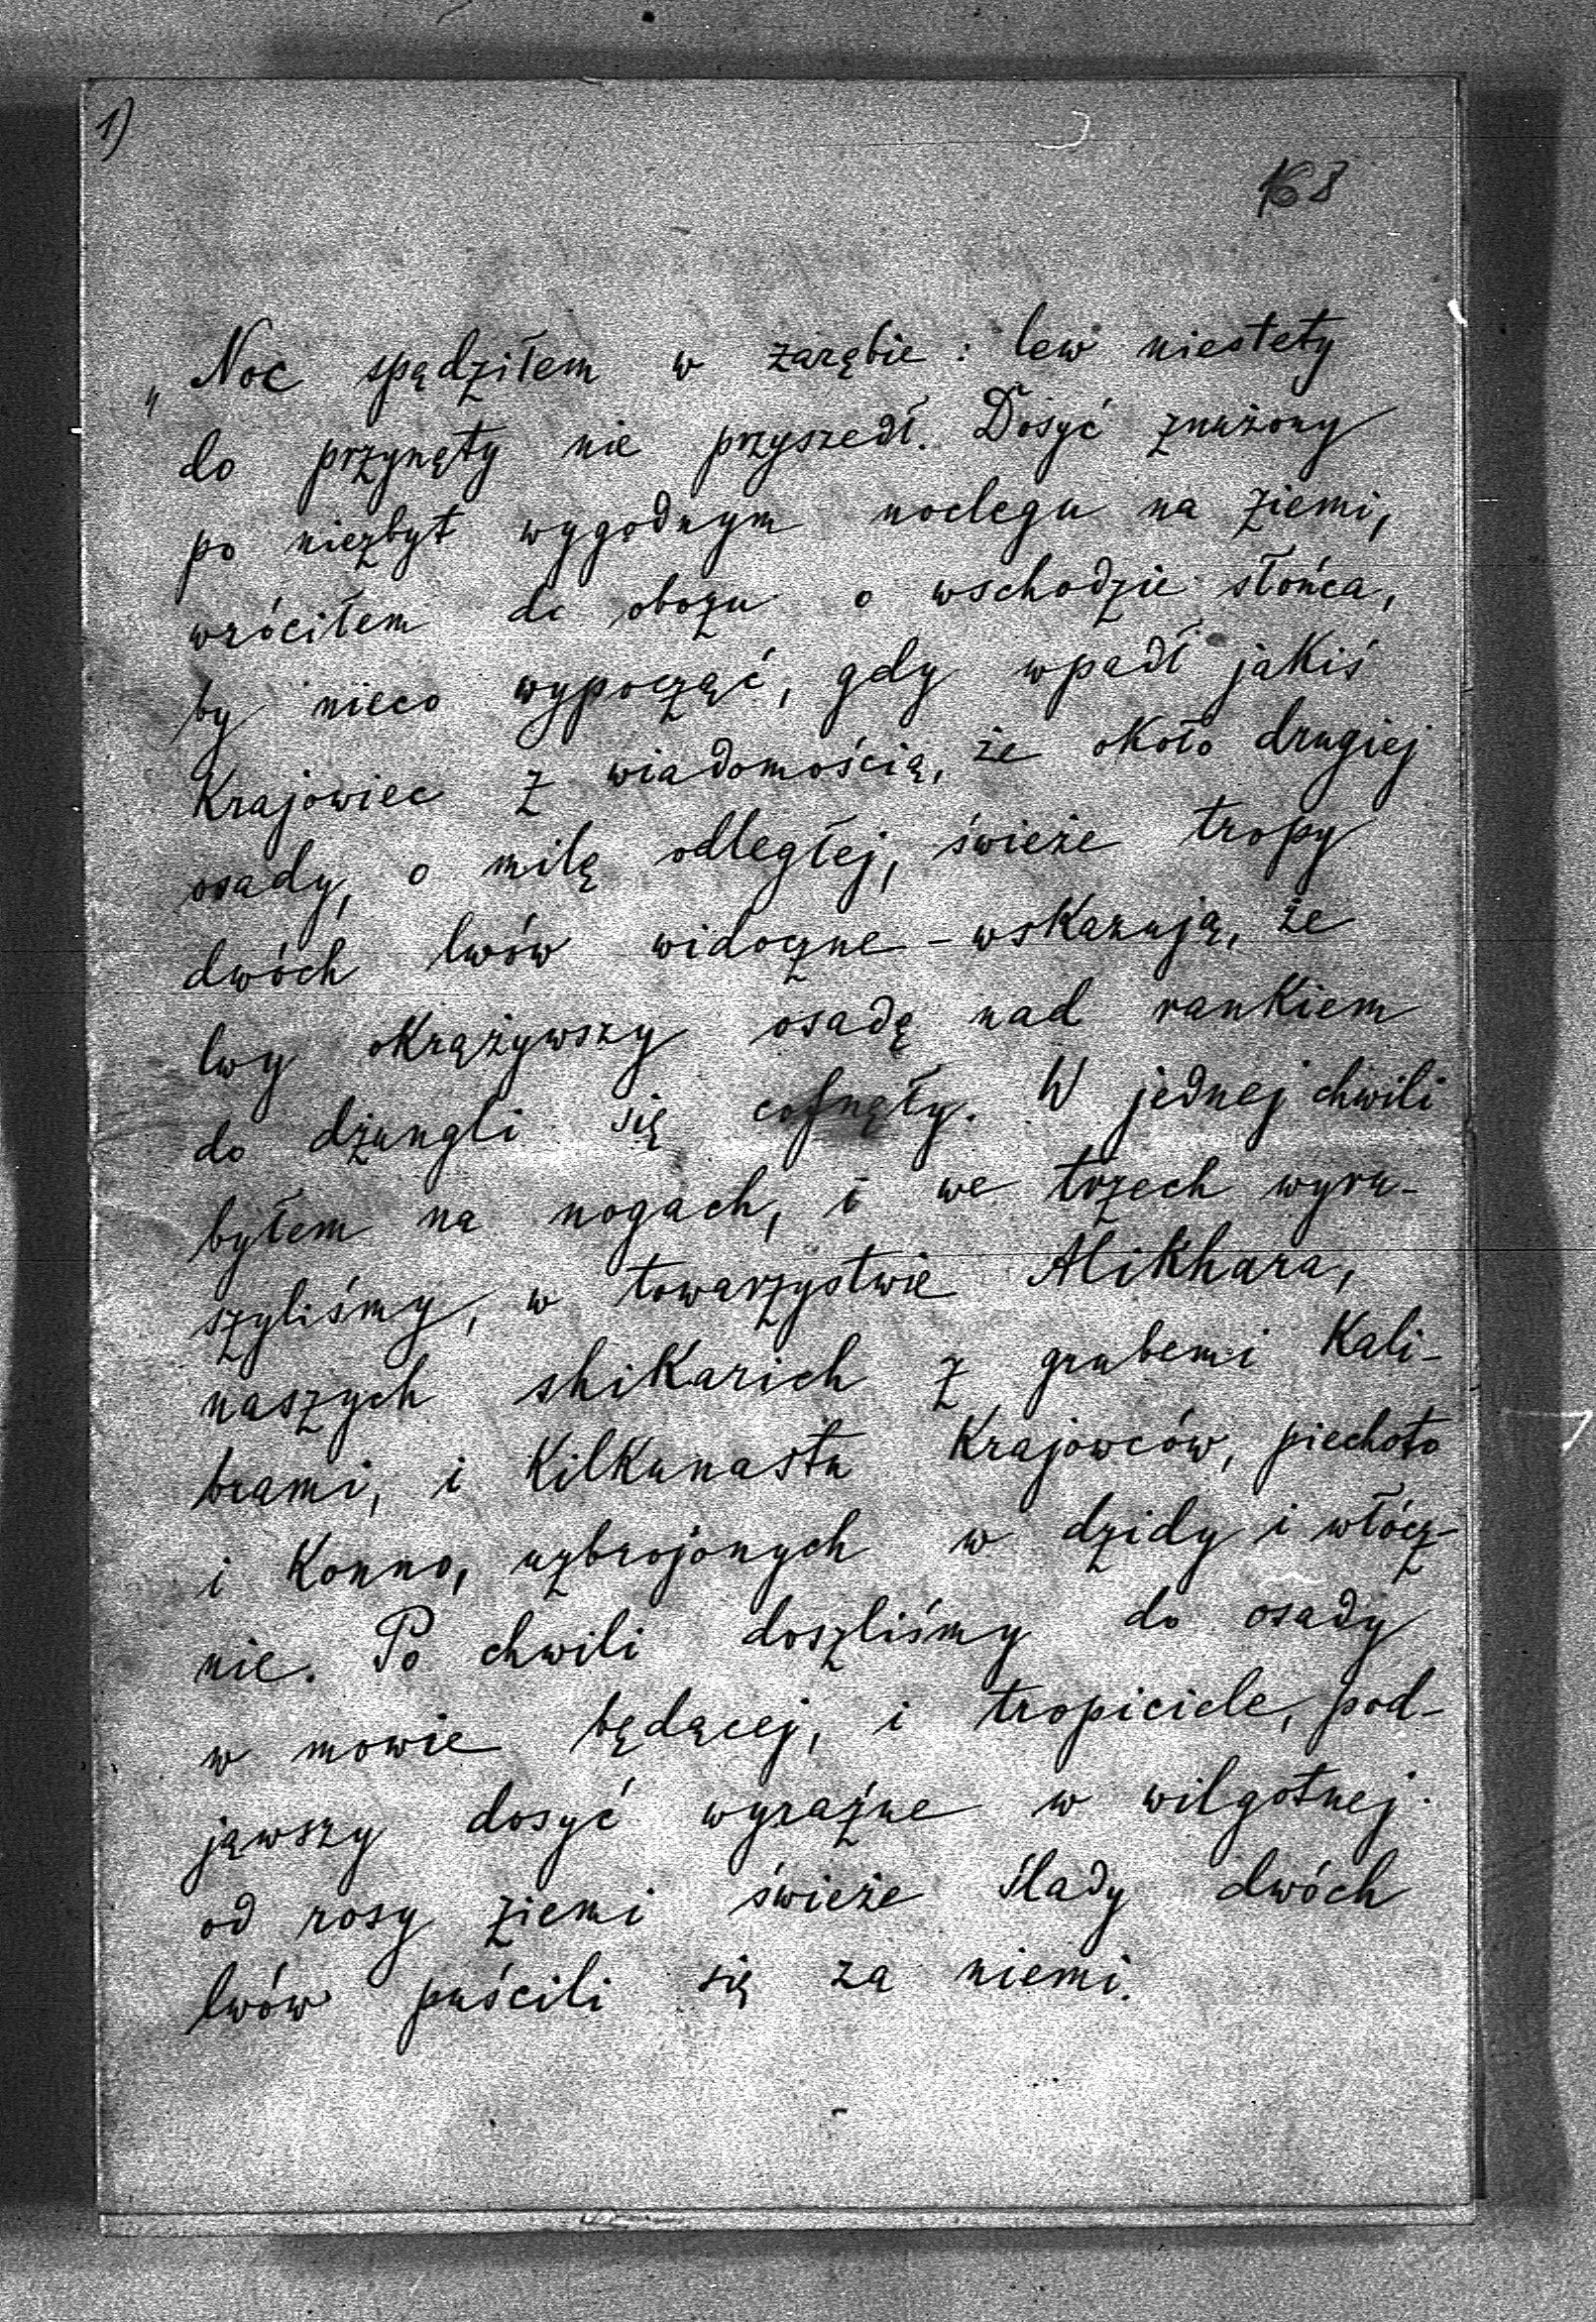 1)
168
„Noc spędziłem w zarębie: lew niestety
do przynęty nie przyszedł. Dosyć znużony
po niezbyt wygodnym noclegu na ziemi,
wróciłem do obozu o wschodzie słońca,
by nieco wypocząć, gdy wpadł jakiś
Krajowiec z wiadomością, że około drugiej
osady, o milę odległej, świeże tropy
dwóch lwów widoczne - wskazują, że
lwy okrążywszy osadę nad rankiem
do dżungli się cofnęły. W jednej chwili
byłem na nogach, i we trzech wyru-
szyliśmy, w towarzystwie Alikhara,
naszych shikarich z grubemi Kali-
brami, i Kilkunastu Krajowców, piechoto
i Konno, uzbrojonych w dzidy i włócz-
nie. Po chwili doszliśmy do osady
w mowie będącej, i tropiciele, pod-
jąwszy dosyć wyraźne w wilgotnej
od rosy ziemi świeże ślady dwóch
lwów puścili się za niemi.